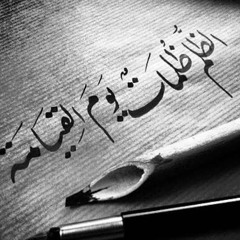 الظلم ظُلُمات يَوْمَ القِيَامَة